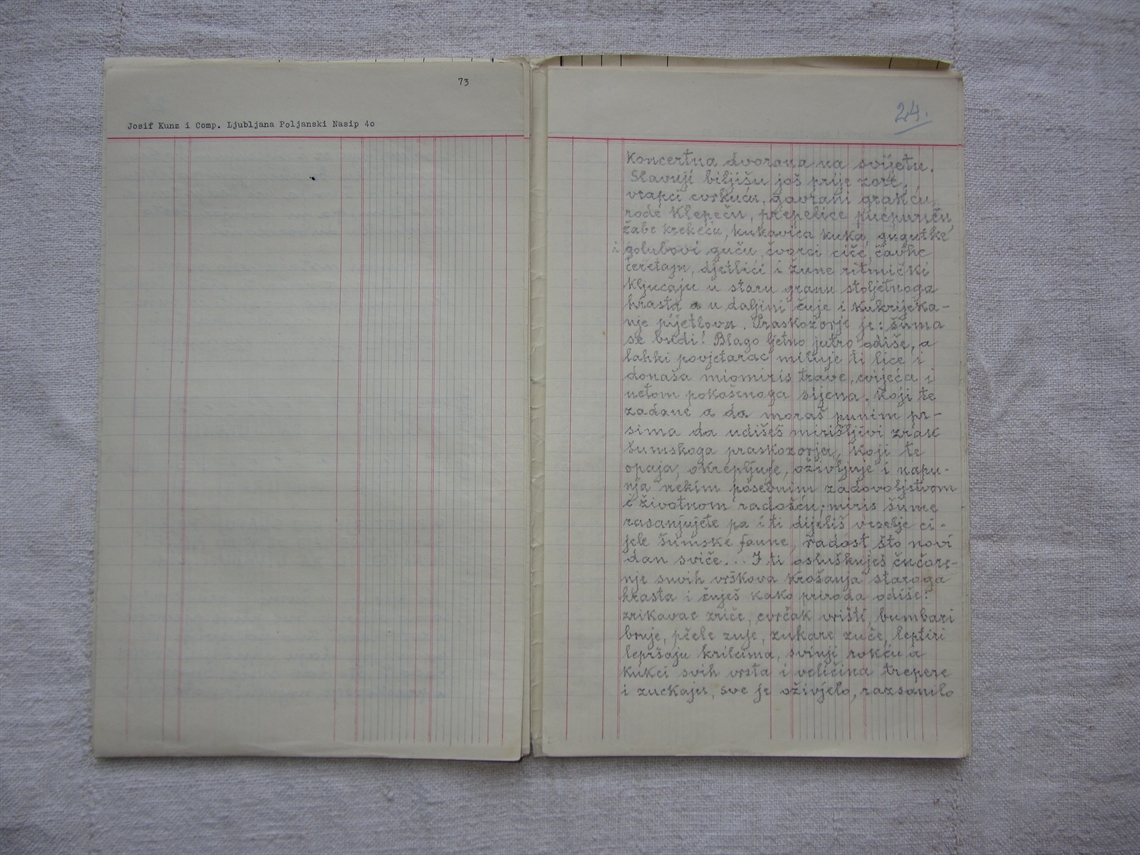 73
Josif Kunz i Comp. Ljubljana Poljanski Nasip 40
24.
Koncertna dvorana na svijetu.
Slavuji biljišu još prije zore,
vrapci cvrkuću, gavrani grakću,
rode klepeću, prepelice pućpuriču
žabe krekeću, kukavica kuka, gugutke
i golubovi guču, čvorci ciče, čavke
čeretaju, djetlići i žune ritmički
kljucaju u staru granu stoljetnoga
hrasta a u daljini čuje i kukrijeka-
nje pijetlova. Praskozorje je: šuma
se budi! Blago ljetno jutro odiše, a
lahki povjetarac miluje ti lice i
donaša miomiris trave, cvijeća i
netom pokošenoga sijena. Koji te
zadane a da moraš punim pr-
sima da udišeš mirišljivi zrak
šumskoga praskozorja, koji te
opaja, okrepljuje, oživljuje i napu-
nja nekim posebnim zadovoljstvom
i životnom radošću; miris šume
rasanjujete pa i ti dijeliš veselje ci-
jele šumske faune, radost što novi
dan sviče... I ti osluškuješ čučore-
nje suvih vrškova krošanja staroga
hrasta i čuješ kako priroda odiše:
zrikavac zriče, cvrčak vrišti bumbari
bruje, pčele zuje, zukare zuče, leptiri
lepršaju krilcima, svinji rokću a
kukci svih vrsta i veličina trepere
i zuckaju, sve je oživjelo, razsanilo